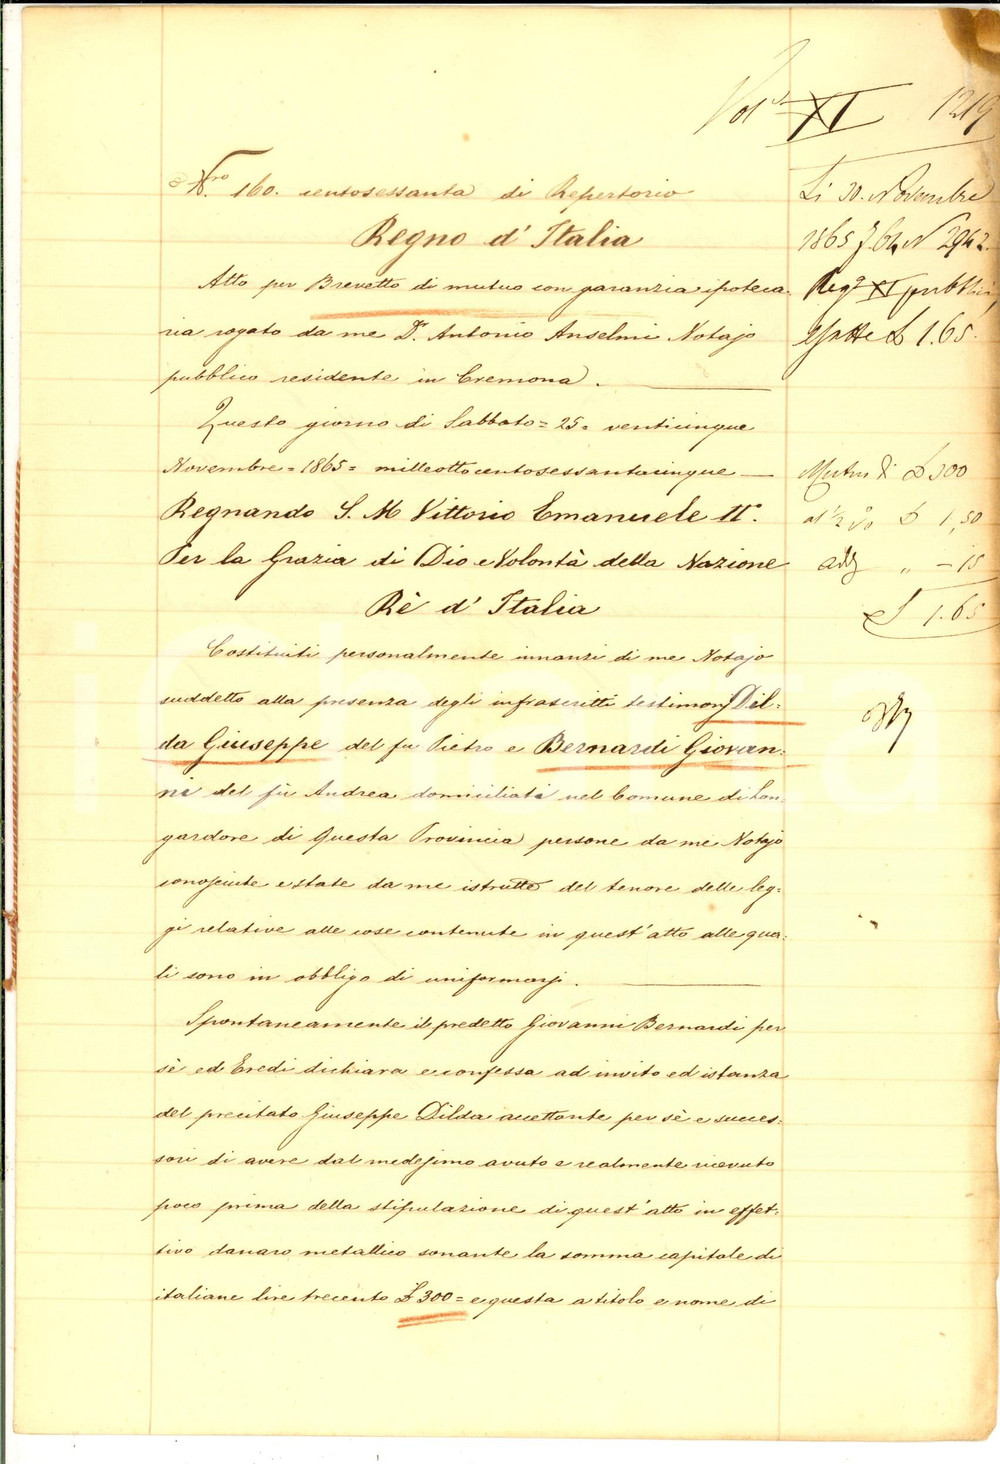 Vol. XI 1219
N.ro 160. centosessanta di Repertorio
Regno d' Italia
Atto per Brevetto di mutuo con garanzia ipoteca-
ria rogato da me D.r Antonio Anselmi Notajo
pubblico residente in Cremona.
Questo giorno di Sabbato = 25 = venticinque
Novembre = 1865 = milleottocentosessantacinque
Regnando S. M Vittorio Emanuele II°.
Per la Grazia di Dio e Volontà della Nazione
Rè d' Italia
Costituiti personalmente innanzi di me Notajo
suddetto alla presenza degli infrascritti testimonj Dil=
da Giuseppe del fu Pietro e Bernardi Giovan=
ni del fù Andrea domiciliati nel Comune di Lon=
gardore di Questa Provincia persone da me Notajo
conosciute e state da me istrutte del tenore delle leg=
gi relative alle cose contenute in quest' atto alle qua=
li sono in obbligo di uniformarsi.
Spontaneamente il predetto Giovanni Bernardi per
sè ed Eredi dichiara e confessa ad invito ed istanza
del precitato Giuseppe Dilda accettante per sè e succes=
sori di avere dal medesimo avuto e realmente ricevuto
poco prima della stipulazione di quest' atto in effet=
tivo danaro metallico sonante la somma capitale di
italiane lire trecento £ 300 = e questa a titolo e nome di
Li 30. Novembre
1865 f. 64 N 2942.
Reg° XI pubblici
esatte £ 1.65.
Mutuo di £ 300
al ½ % £ 1,50
add „ - 15
£ 1.65